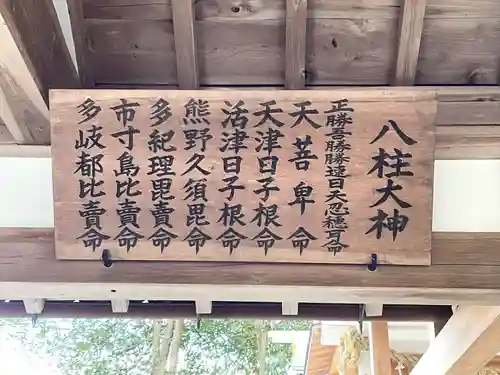 八柱大神
正勝吾勝勝速日天忍穂耳命
天菩卑命
天津日子根命
活津日子根命
熊野久須毘命
多紀理毘賣命
市寸島比賣命
多岐都比賣命